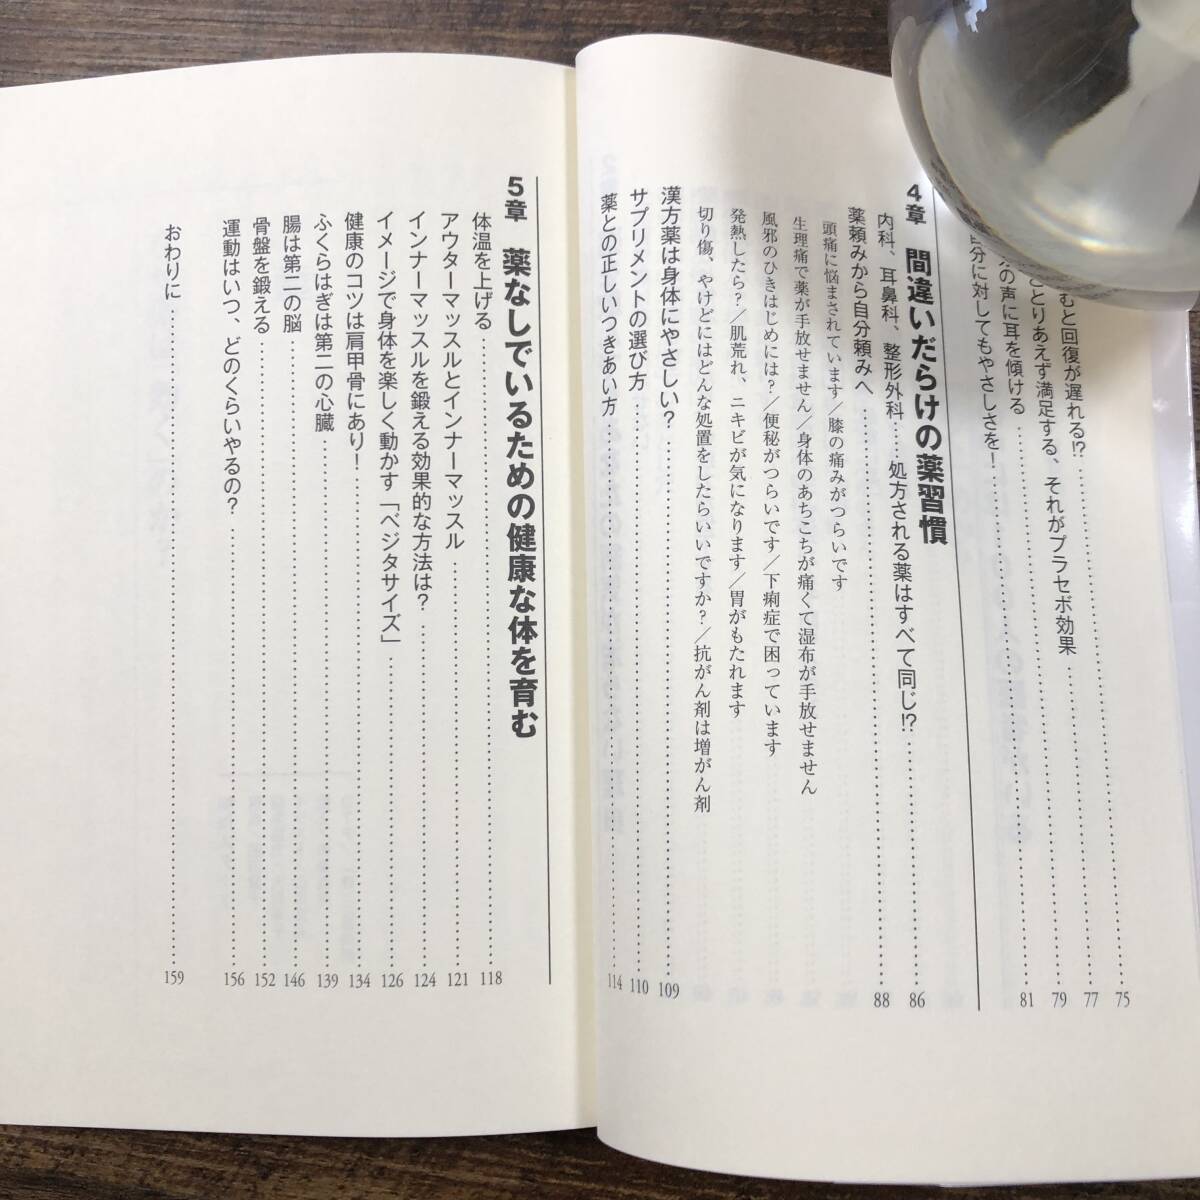 むと回復が遅れる!?……75
とりあえず満足する、それがプラセボ効果……77
の声に耳を傾ける……79
分に対してもやさしさを!……81
4章 間違いだらけの薬習慣
内科、耳鼻科、整形外科……処方される薬はすべて同じ!?……86
薬頼みから自分頼みへ……88
頭痛に悩まされています/膝の痛みがつらいです
生理痛で薬が手放せません/身体のあちこちが痛くて湿布が手放せません
風邪のひきはじめには?/便秘がつらいです/下痢症で困っています
発熱したら?/肌荒れ、ニキビが気になります/胃がもたれます
切り傷、やけどにはどんな処置をしたらいいですか?/抗がん剤は増がん剤
漢方薬は身体にやさしい?……109
サプリメントの選び方……110
薬との正しいつきあい方……114
5章 薬なしでいるための健康な体を育む
体温を上げる……118
アウターマッスルとインナーマッスル……121
インナーマッスルを鍛える効果的な方法は?……124
イメージで身体を楽しく動かす「ベジタサイズ」……126
健康のコツは肩甲骨にあり!……134
ふくらはぎは第二の心臓……139
腸は第二の脳……146
骨盤を鍛える……152
運動はいつ、どのくらいやるの?……156
おわりに……159